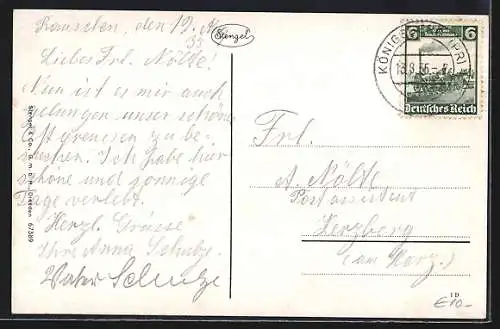 Rauschen, den 19. A.
35
Stengel
Liebes Frl. Nölte!
Nun ist es mir auch
gelungen unser schönes
Ostpreussen zu be-
suchen. Ich habe hier
schöne und sonnige
Tage verlebt.
Herzl. Grüsse
Ihre Anna Schulze
Walter Schulze
Stengel & Co., G. m. b. H., Dresden 67389
6 6
KÖNIGSBERG (PR)
18.8.35
Deutsches Reich
Frl.
A. Nölte
Postassistent
Herzberg
(am Harz.)
1D
€10-